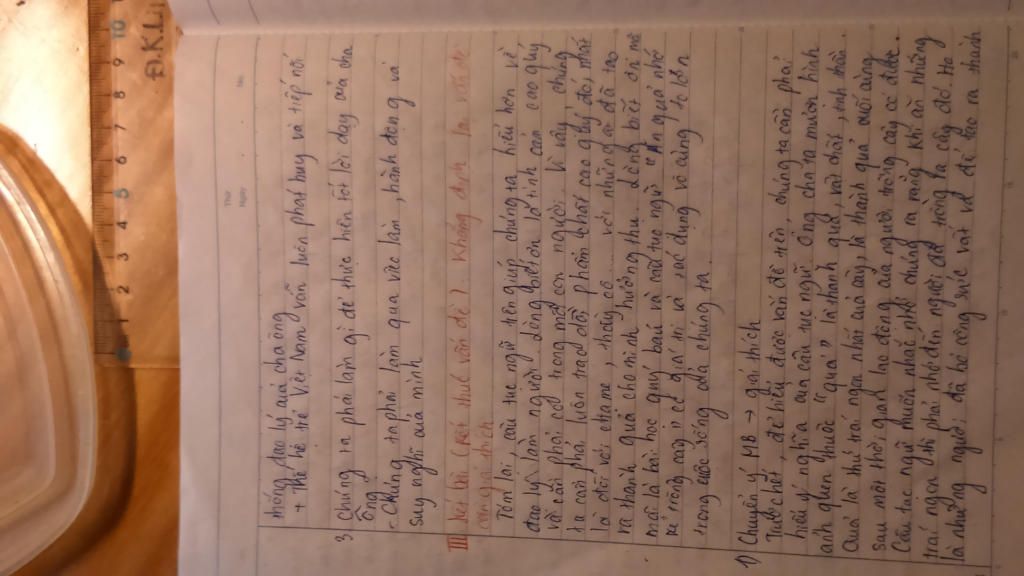 thống đạo lý của cha ông
+ Thế hệ trẻ Việt Nam vẫn luôn phát huy và tiếp nối
3. Chúng ta phải làm gì để thực hiện tốt lời dạy của cha
ông?
- Chúng ta phải làm qua việc làm, hành động và
suy nghĩ của mình
III Kết bài (kết thúc vấn đề). Khẳng định lại vấn đề
cần giải thích
Tóm lại, câu tục ngữ trên giúp chúng ta hiểu hơn về
đạo lý làm người. Lòng biết ơn là tình cảm cao quý
và cần phải có trong mỗi con người. Vì vậy chúng
ta cần phải luôn trao dồi phẩm chất cao quý đó, nhất
là đối với cha mẹ, thầy cô... với những ai đã tạo
ra thành quả cho mình hưởng thụ. Lòng biết ơn mãi
mãi là bài học quý báu và câu tục ngữ "Ăn quả nhớ
kẻ trồng cây" có giá trị và tác dụng vô cùng to lớn
trong cuộc sống của chúng ta.
1) Chuyển ý MB → giải thích
Trước hết, để hiểu được vấn đề trên, chúng ta cần phải
hiểu ý nghĩa của câu tục ngữ. Ông cha ta mượn hình
ảnh quen thuộc "quả" là thành quả, vật chất, tinh thần.
Quả là thứ trái ngon nhất của cây, là thành quả cuối cùng
sau một thời gian lao động của người trồng cây có được.
Câu tục ngữ muốn nhắc nhở chúng ta rằng khi ăn những
trái ngon thì phải nhớ đến người đã trồng ra cây đó. Họ
là những người đã bỏ công sức vất vả để tạo ra thành
Thứ
Ngày
No.
0 1 2 3 4 5 6 7 8 9 10
Đ.K.L